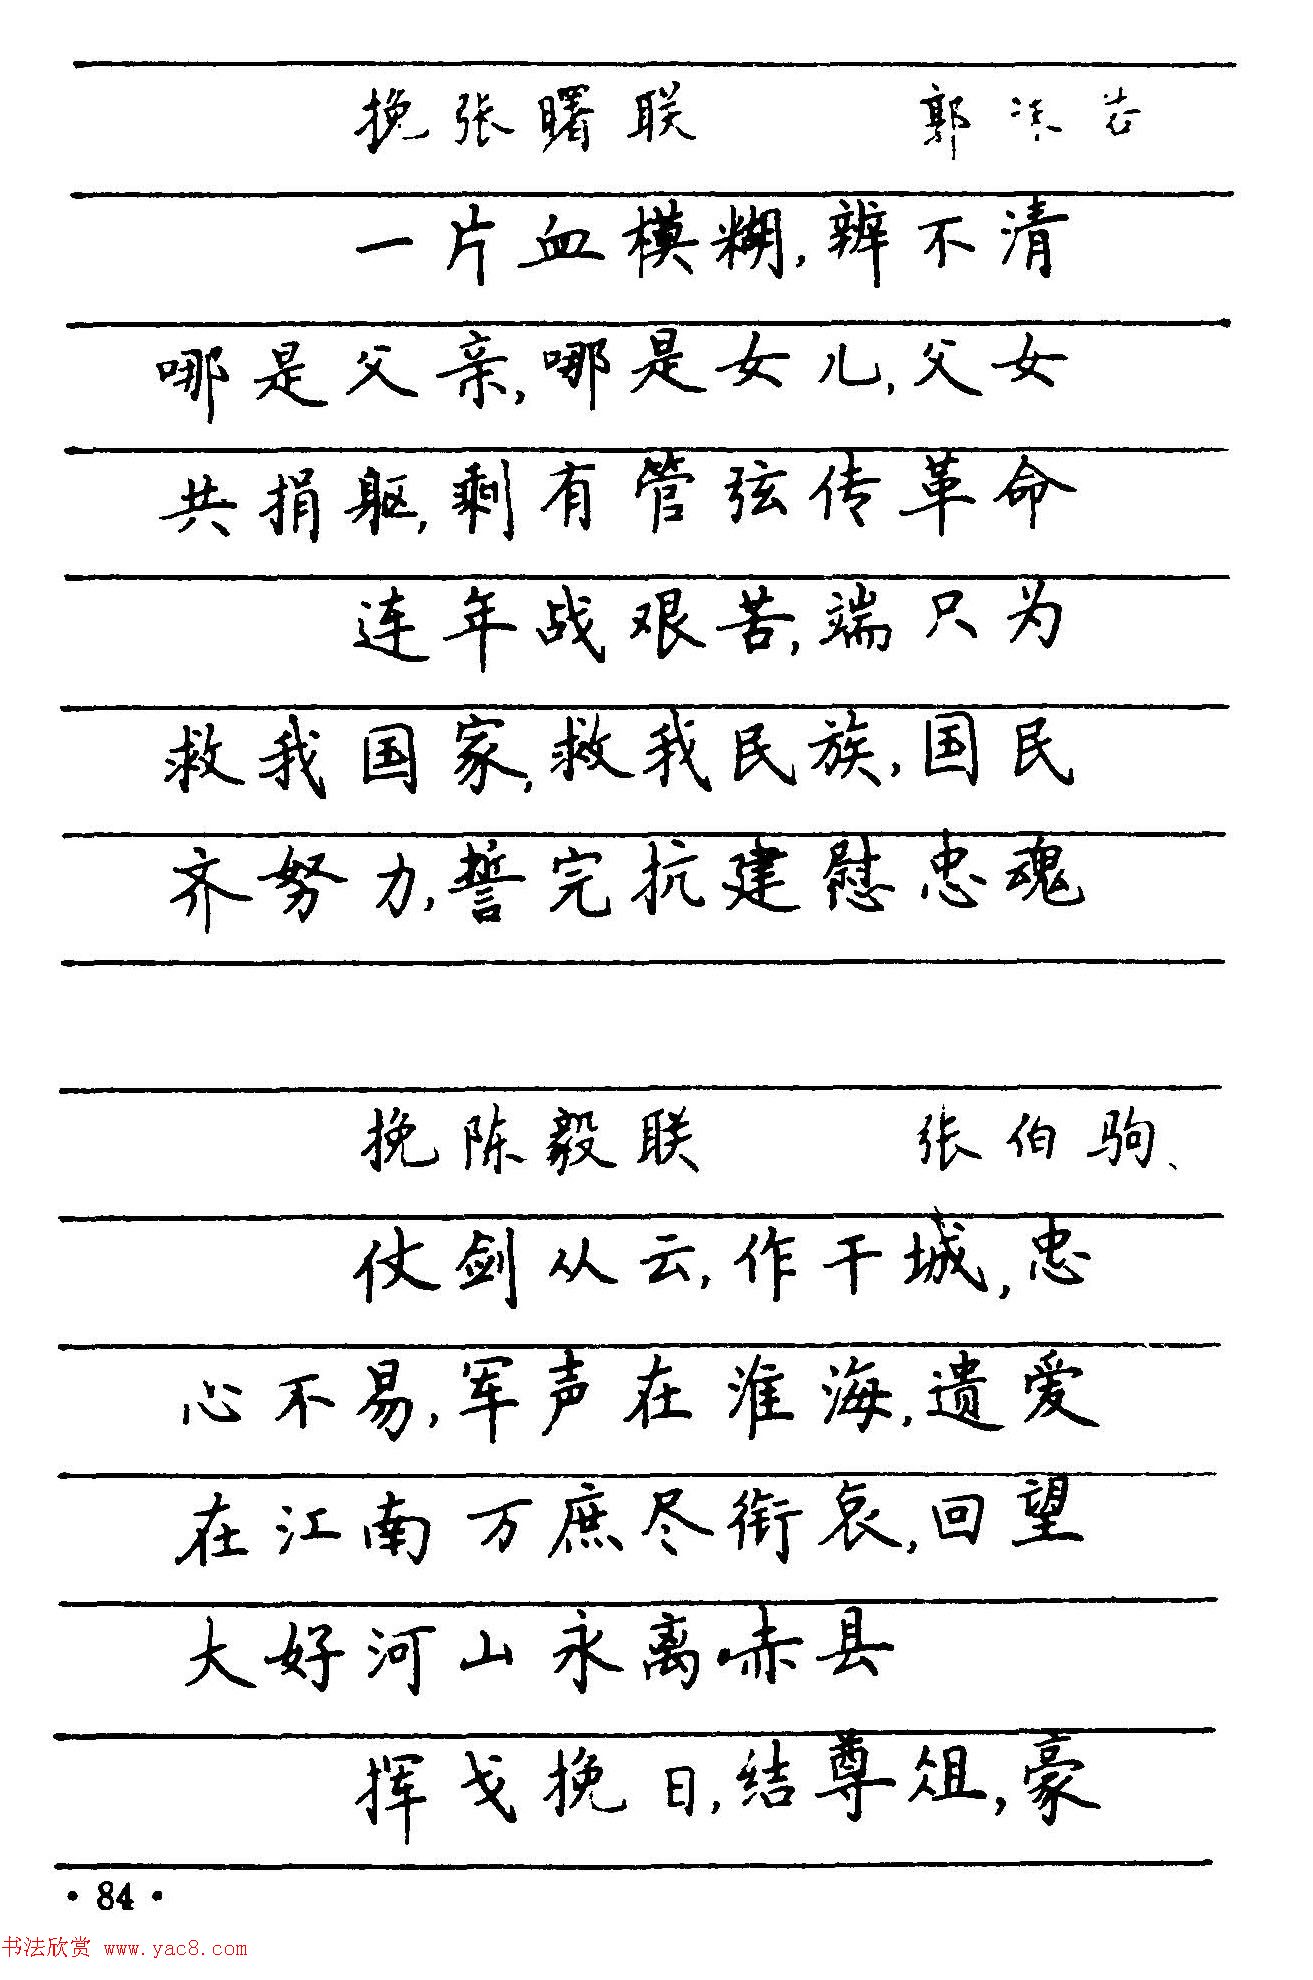 挽张曙联 郭沫若
一片血模糊,辨不清
哪是父亲,哪是女儿,父女
共捐躯,剩有管弦传革命
连年战艰苦,端只为
救我国家,救我民族,国民
齐努力,誓完抗建慰忠魂
挽陈毅联 张伯驹、
仗剑从云,作干城,忠
心不易,军声在淮海,遗爱
在江南万庶尽衔哀,回望
大好河山永离.赤县
挥戈挽日,结尊俎,豪
·84·
书法欣赏 www.yac8.com